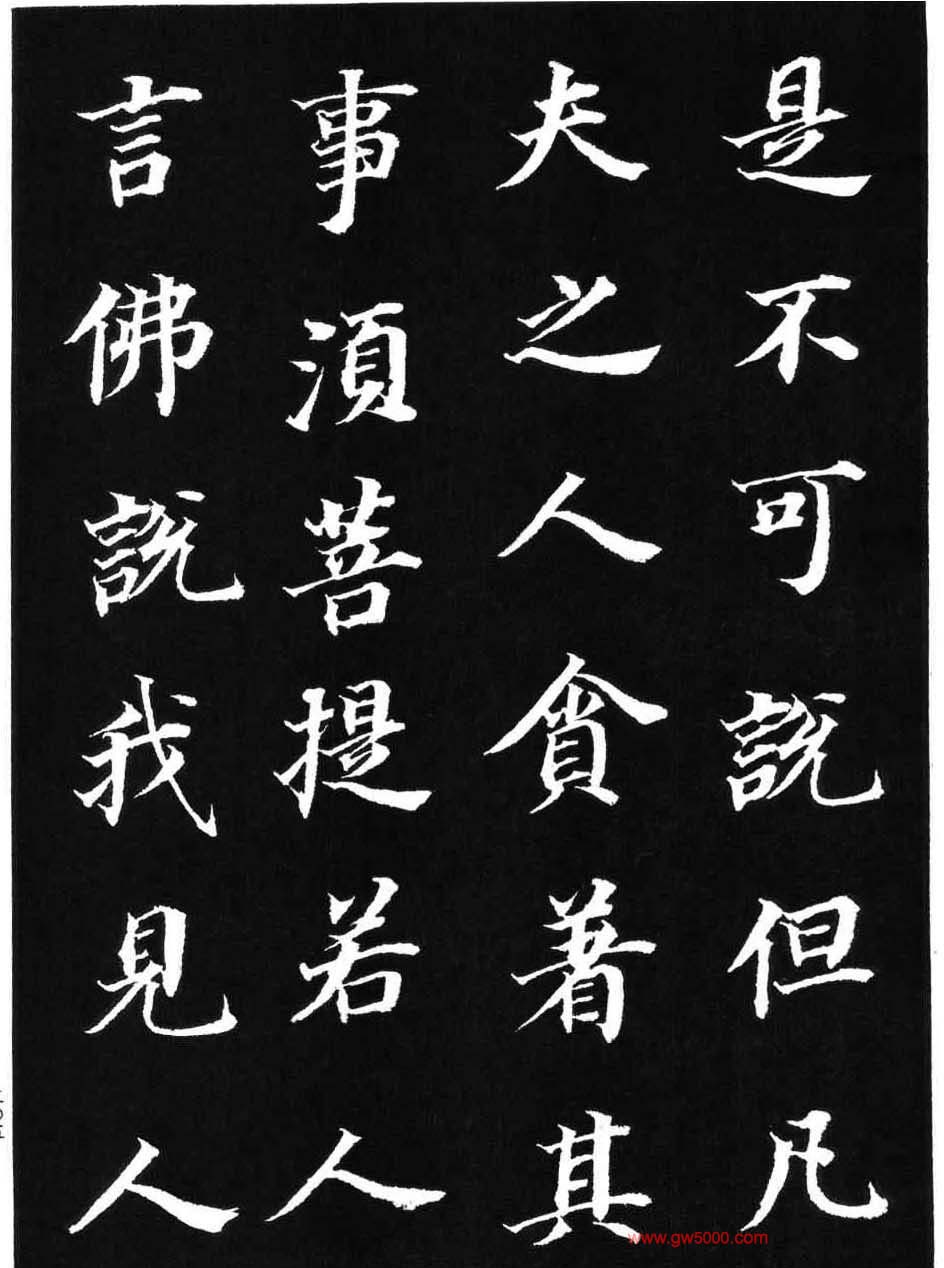 是不可說但凡
夫之人貪著其
事須菩提若人
言佛說我見人
www.gw5000.com